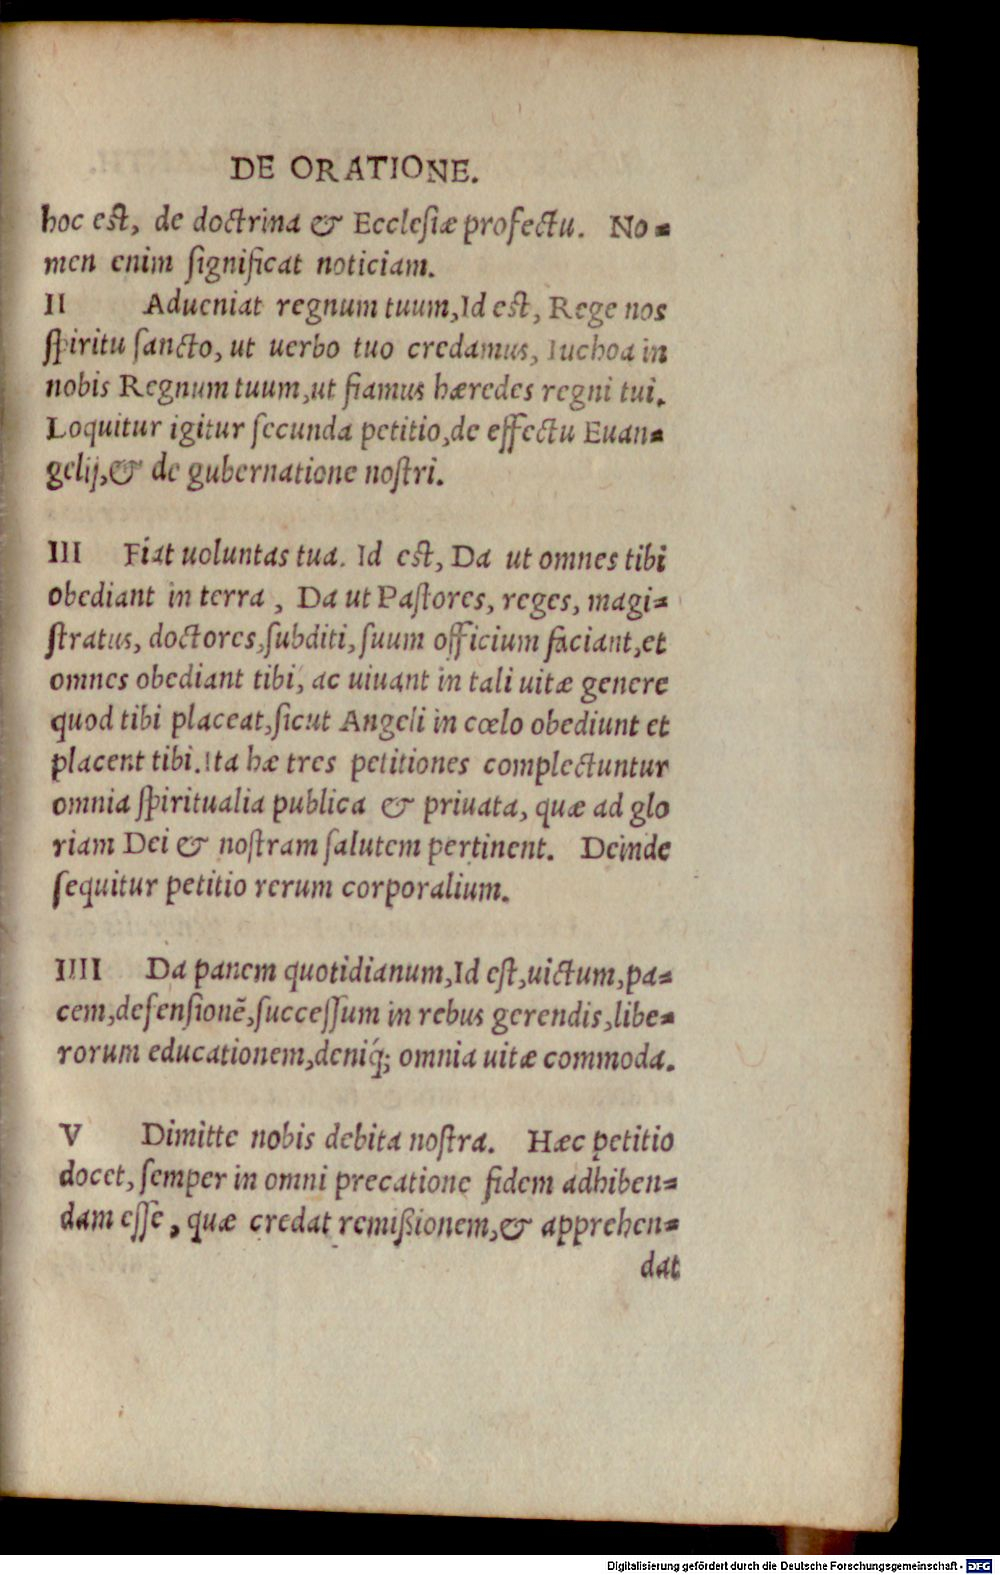 DE ORATIONE.
hoc est, de doctrina & Ecclesiæ profectu. No=
men enim significat noticiam.
II Adueniat regnum tuum, Id est, Rege nos
spiritu sancto, ut uerbo tuo credamus, Iuchoa in
nobis Regnum tuum, ut fiamus hæredes regni tui.
Loquitur igitur secunda petitio, de effectu Euan=
gelij, & de gubernatione nostri.
III Fiat uoluntas tua. Id est, Da ut omnes tibi
obediant in terra, Da ut Pastores, reges, magi=
stratus, doctores, subditi, suum officium faciant, et
omnes obediant tibi, ac uiuant in tali uitæ genere
quod tibi placeat, sicut Angeli in cœlo obediunt et
placent tibi. Ita hæ tres petitiones complectuntur
omnia spiritualia publica & priuata, quæ ad glo
riam Dei & nostram salutem pertinent. Deinde
sequitur petitio rerum corporalium.
IIII Da panem quotidianum, Id est, uictum, pa=
cem, defensionẽ, successum in rebus gerendis, libe=
rorum educationem, deniq́; omnia uitæ commoda.
V Dimitte nobis debita nostra. Hæc petitio
docet, semper in omni precatione fidem adhiben=
dam esse, quæ credat remißionem, & apprehen=
dat
Digitalisierung gefördert durch die Deutsche Forschungsgemeinschaft - DFG